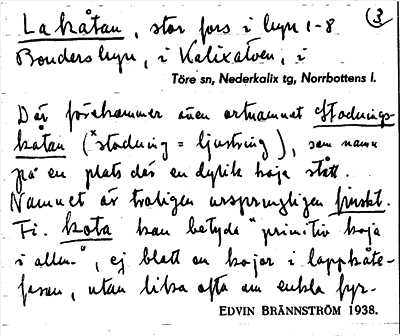 Lakåtan, stor fors i byn 1-8 ③
Bondersbyn, i Kalixälven, i
Töre sn, Nederkalix tg, Norrbottens l.
Där förekommer även ortnamnet Stodnings-
kåtan (ˣstodning = ljustring), som namn
på en plats där en dylik koja stått.
Namnet är troligen ursprungligen finskt.
Fi. kota kan betyda "primitiv koja
i allm.", ej blott om kojor i lappkåte-
fason, utan lika ofta om enkla fyr-
EDVIN BRÄNNSTRÖM 1938.